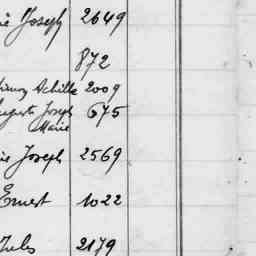 Joseph 2649
872
Achille 2009
Auguste Joseph 675
Marie
Joseph 2569
Ernest 1022
Jules 2179